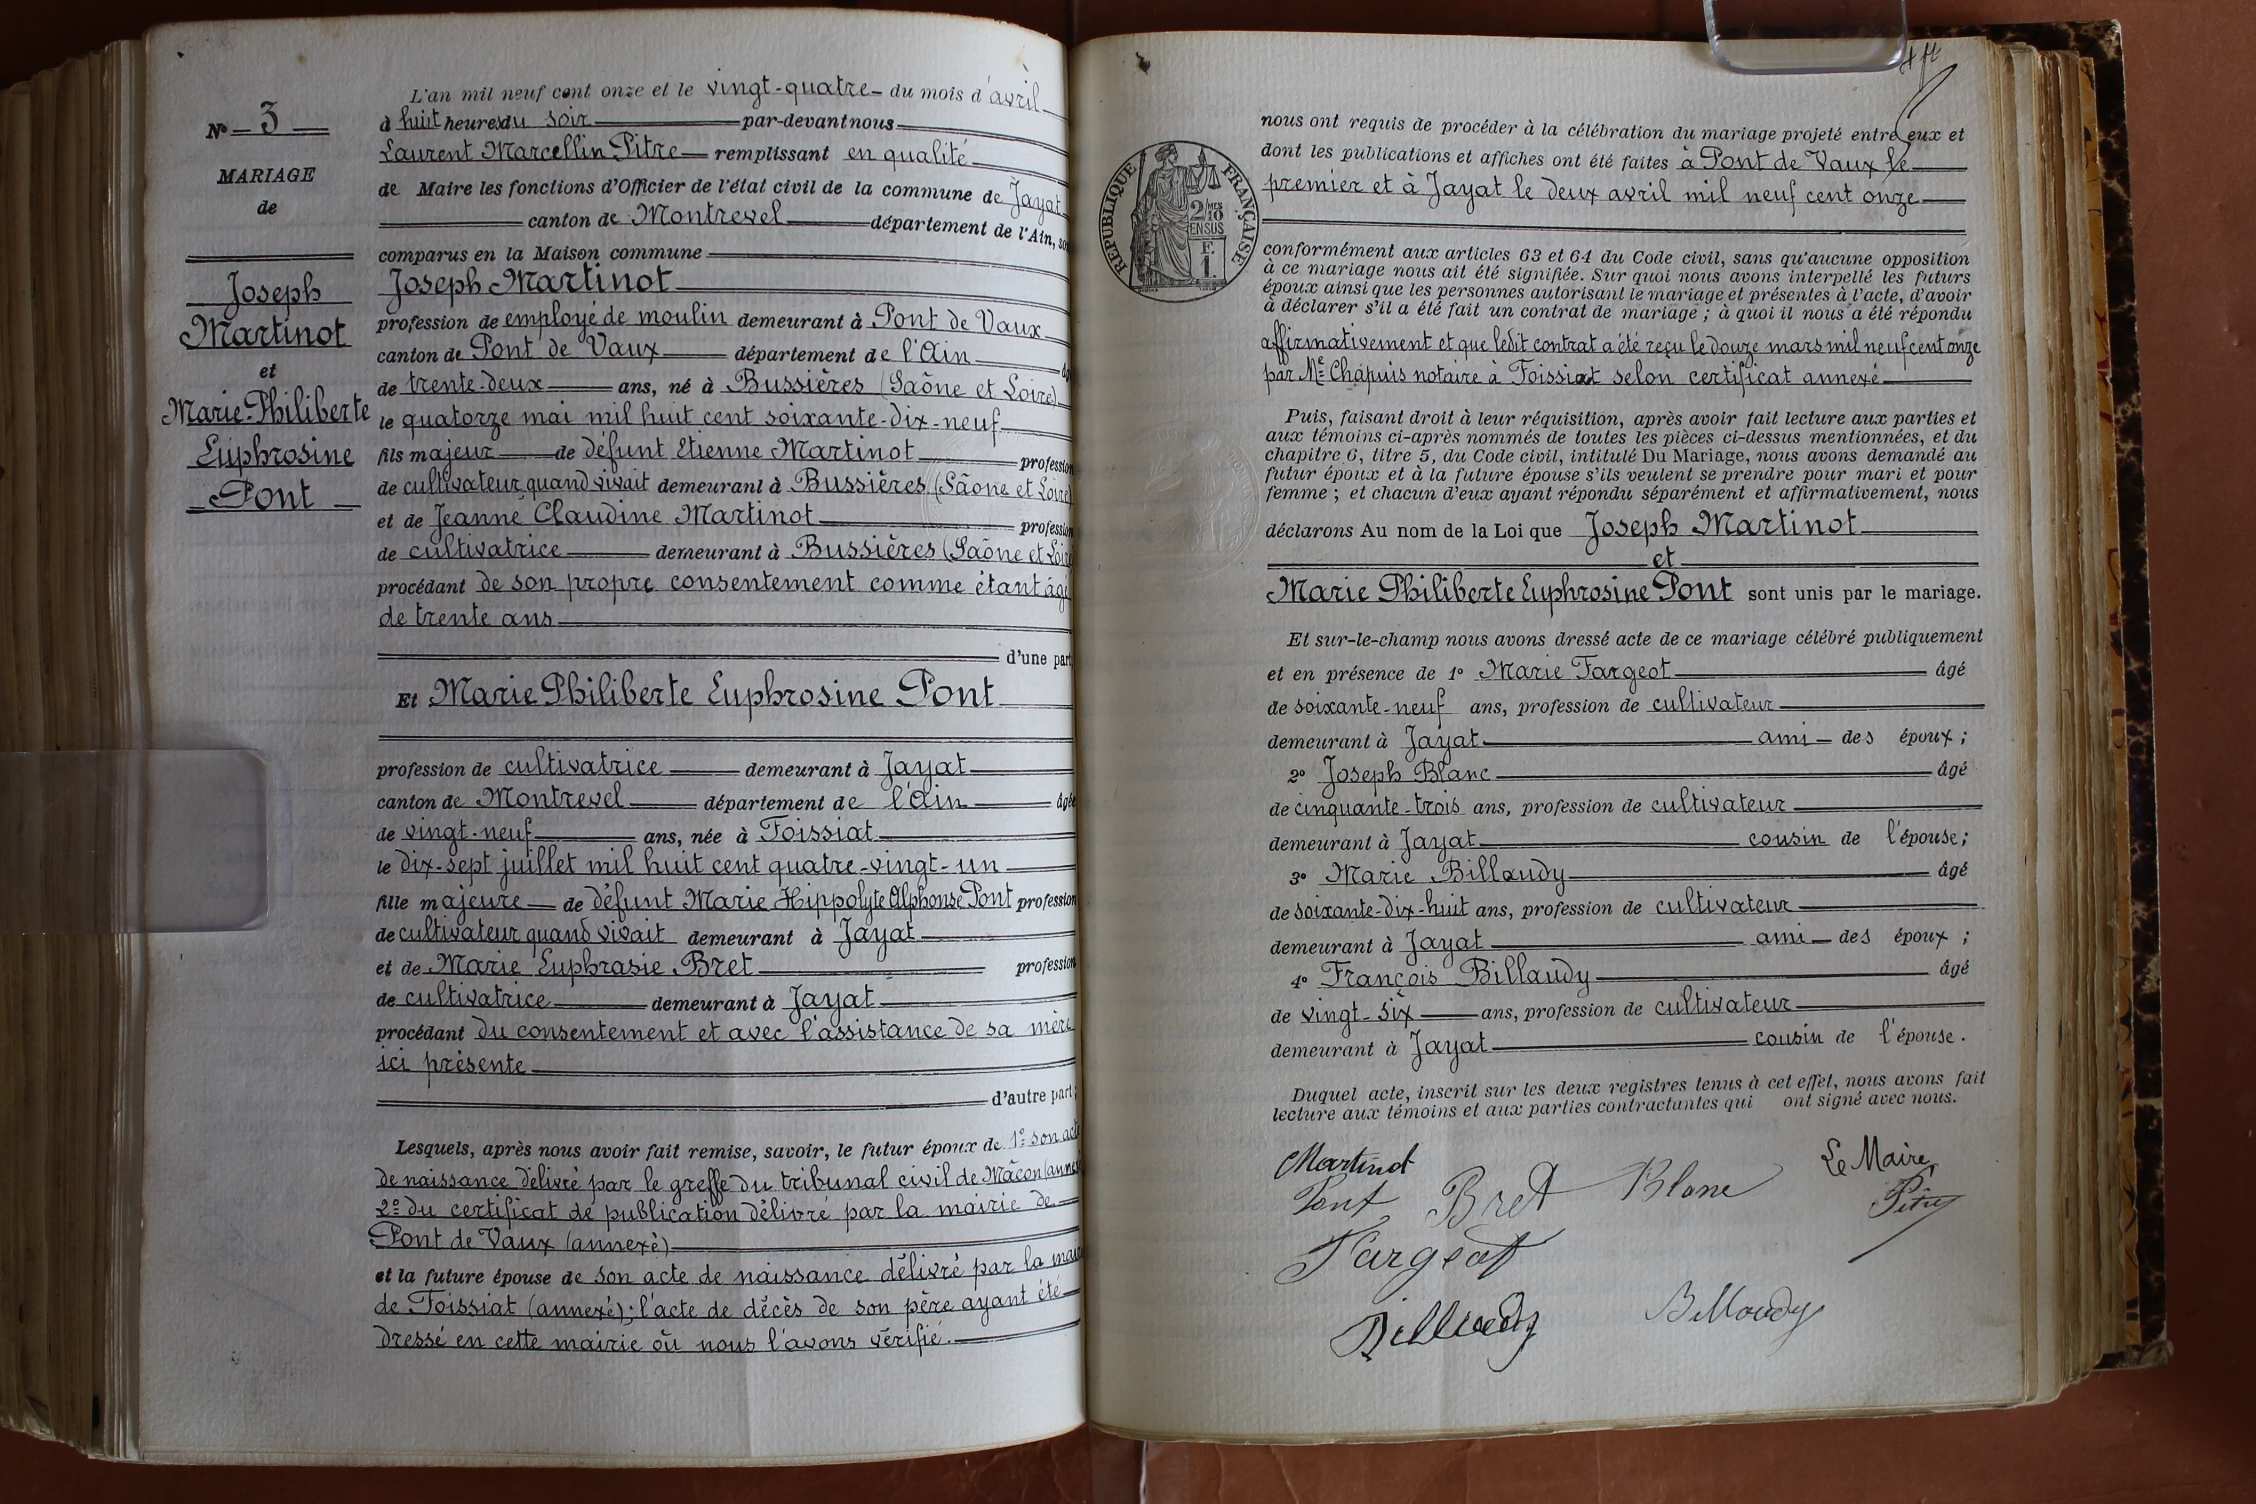 N° 3
MARIAGE
de
Joseph
Martinot
et
Marie-Philiberte
Euphrosine
Pont
L'an mil neuf cent onze et le vingt-quatre du mois d'avril
à huit heures du soir par-devant nous
Laurent Marcellin Pitre remplissant en qualité
de Maire les fonctions d'Officier de l'état civil de la commune de Jayat
canton de Montrevel département de l'Ain, so
comparus en la Maison commune
Joseph Martinot
profession de employé de moulin demeurant à Pont de Vaux
canton de Pont de Vaux département de l'Ain âg
de trente-deux ans, né à Bussières (Saône et Loire)
le quatorze mai mil huit cent soixante-dix-neuf
fils majeur de défunt Etienne Martinot profession
de cultivateur quand vivait demeurant à Bussières (Sâone et Loire)
et de Jeanne Claudine Martinot profession
de cultivatrice demeurant à Bussières (Saône et Loire
procédant de son propre consentement comme étant âgé
de trente ans
d'une part
Et Marie Philiberte Euphrosine Pont
profession de cultivatrice demeurant à Jayat
canton de Montrevel département de l'Ain âgée
de vingt-neuf ans, née à Foissiat
le dix-sept juillet mil huit cent quatre-vingt-un
fille majeure de défunt Marie Hippolyte Alphonse Pont profession
de cultivateur quand vivait demeurant à Jayat
et de Marie Euphrasie Bret profession
de cultivatrice demeurant à Jayat
procédant du consentement et avec l'assistance de sa mère
ici présente
d'autre part;
Lesquels, après nous avoir fait remise, savoir, le futur époux de 1° son acte
de naissance délivré par le greffe du tribunal civil de Mâcon (annexé
2° du certificat de publication délivré par la mairie de
Pont de Vaux (annexé)
et la future épouse de son acte de naissance délivré par la mai
de Foissiat (annexé); l'acte de décès de son père ayant été
dressé en cette mairie où nous l'avons vérifié.
RÉPUBLIQUE FRANÇAISE
2/MES
10
EN SUS
F.
1.
nous ont requis de procéder à la célébration du mariage projeté entre eux et
dont les publications et affiches ont été faites à Pont de Vaux le
premier et à Jayat le deux avril mil neuf cent onze
conformément aux articles 63 et 64 du Code civil, sans qu'aucune opposition
à ce mariage nous ait été signifiée. Sur quoi nous avons interpellé les futurs
époux ainsi que les personnes autorisant le mariage et présentes à l'acte, d'avoir
à déclarer s'il a été fait un contrat de mariage ; à quoi il nous a été répondu
affirmativement et que ledit contrat a été reçu le douze mars mil neuf cent onze
par Me Chapuis notaire à Foissiat selon certificat annexé
Puis, faisant droit à leur réquisition, après avoir fait lecture aux parties et
aux témoins ci-après nommés de toutes les pièces ci-dessus mentionnées, et du
chapitre 6, titre 5, du Code civil, intitulé Du Mariage, nous avons demandé au
futur époux et à la future épouse s'ils veulent se prendre pour mari et pour
femme ; et chacun d'eux ayant répondu séparément et affirmativement, nous
déclarons Au nom de la Loi que Joseph Martinot
et
Marie Philiberte Euphrosine Pont sont unis par le mariage.
Et sur-le-champ nous avons dressé acte de ce mariage célébré publiquement
et en présence de 1° Marie Fargeot âgé
de soixante-neuf ans, profession de cultivateur
demeurant à Jayat ami des époux ;
2° Joseph Blanc âgé
de cinquante-trois ans, profession de cultivateur
demeurant à Jayat cousin de l'épouse ;
3° Marie Billoudy âgé
de soixante-dix-huit ans, profession de cultivateur
demeurant à Jayat ami des époux ;
4° François Billaudy âgé
de vingt-six ans, profession de cultivateur
demeurant à Jayat cousin de l'épouse.
Duquel acte, inscrit sur les deux registres tenus à cet effet, nous avons fait
lecture aux témoins et aux parties contractantes qui ont signé avec nous.
Martinot
Le Maire,
Pont Bret Blanc Pitre
Fargeot
Billoudy Billoudy